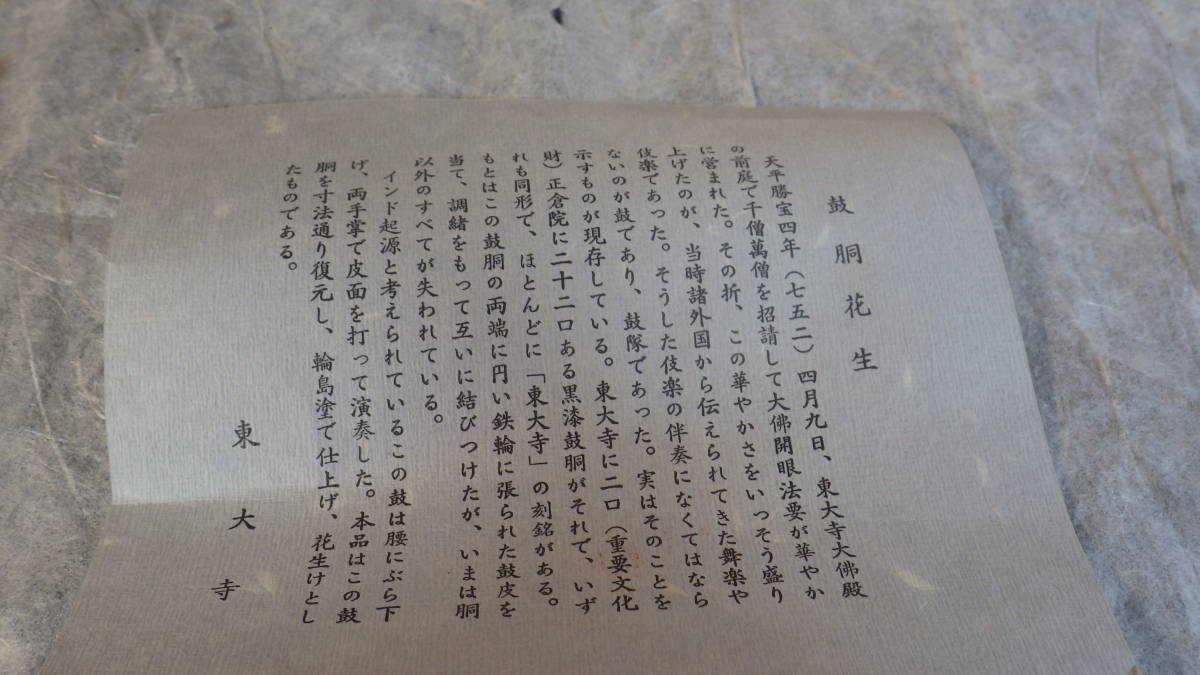 鼓胴花生
天平勝宝四年（七五二）四月九日、東大寺大佛殿
の前庭で千僧萬僧を招請して大佛開眼法要が華やか
に営まれた。その折、この華やかさをいっそう盛り
上げたのが、当時諸外国から伝えられてきた舞楽や
伎楽であった。そうした伎楽の伴奏になくてはなら
ないのが鼓であり、鼓隊であった。実はそのことを
示すものが現存している。東大寺に二口（重要文化
財）正倉院に二十二口ある黒漆鼓胴がそれで、いず
れも同形で、ほとんどに「東大寺」の刻銘がある。
もとはこの鼓胴の両端に円い鉄輪に張られた鼓皮を
当て、調緒をもって互いに結びつけたが、いまは胴
以外のすべてが失われている。
インド起源と考えられているこの鼓は腰にぶら下
げ、両手掌で皮面を打って演奏した。本品はこの鼓
胴を寸法通り復元し、輪島塗で仕上げ、花生けとし
たものである。
東大寺